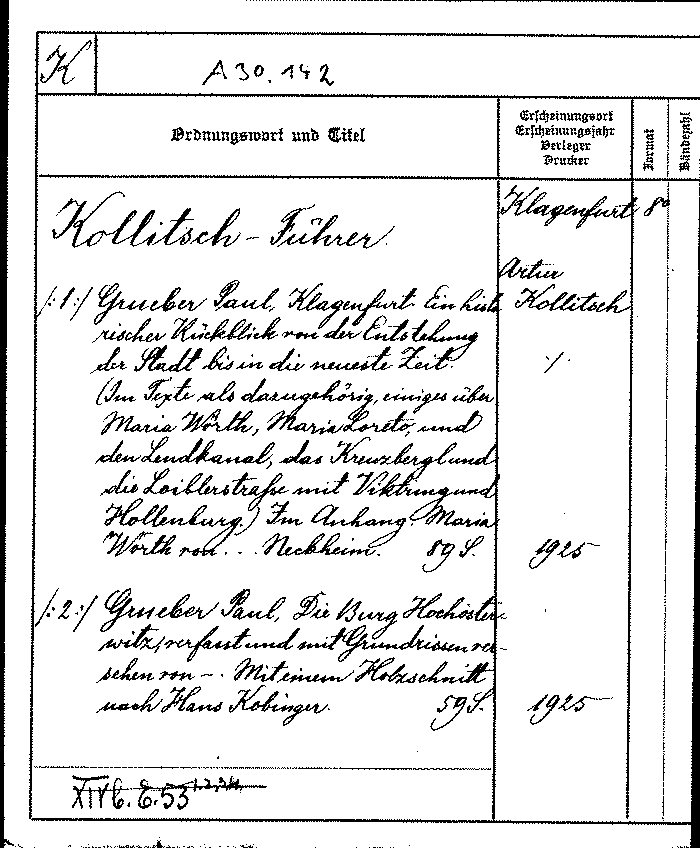 K
A 30.142
Ordnungswort und Titel
Erscheinungsort
Erscheinungsjahr
Verleger
Drucker
Format
Bändezahl
Kollitsch-Führer.
Klagenfurt 8°
Artur
Kollitsch
/:1:/ Grueber Paul, Klagenfurt. Ein histo
rischer Rückblick von der Entstehung
der Stadt bis in die neueste Zeit.
(Im Texte als dazugehörig, einiges über
Maria Wörth, Maria Loreto, und
den Lendkanal, das Kreuzbergl und
die Loiblerstraße mit Viktring und
Hollenburg.) Im Anhang: Maria
Wörth von ... Neckheim. 89 S. 1925
/:2:/ Grueber Paul, Die Burg Hochoster-
witz, verfasst und mit Grundrissen ver-
sehen von -. Mit einem Holzschnitt
nach Hans Kobinger. 59 S. 1925
E.53 1.2.3.4.